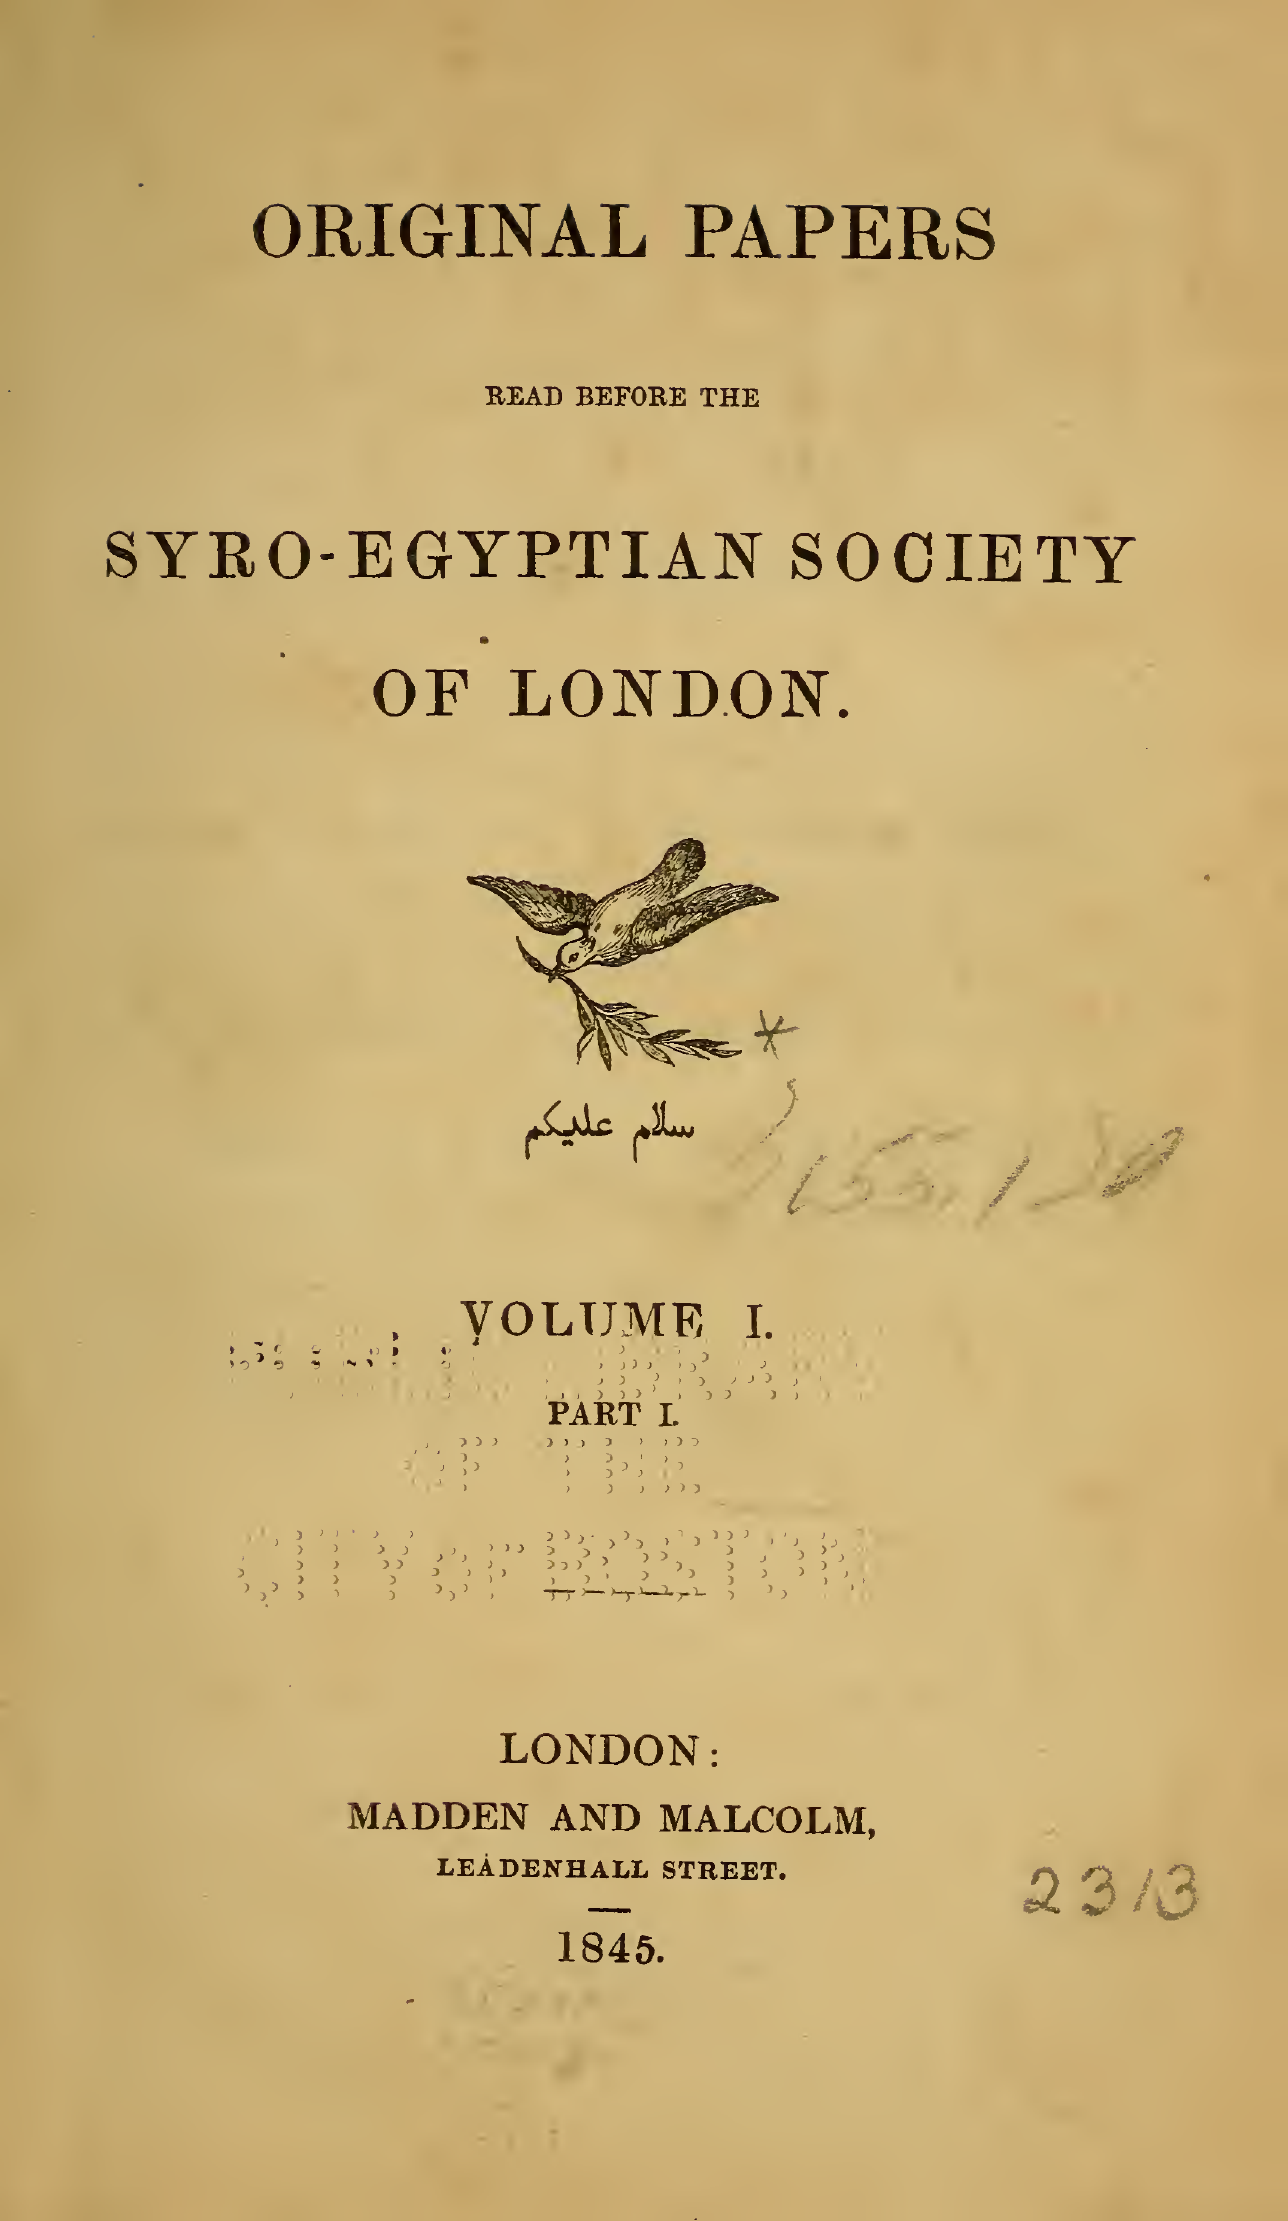 ORIGINAL PAPERS
READ BEFORE THE
SYRO-EGYPTIAN SOCIETY
OF LONDON.
سلام عليكم
VOLUME I.
PUBLIC LIBRARY
PART I.
OF THE
CITY OF BOSTON
LONDON:
MADDEN AND MALCOLM,
LEADENHALL STREET.
1845.
2313